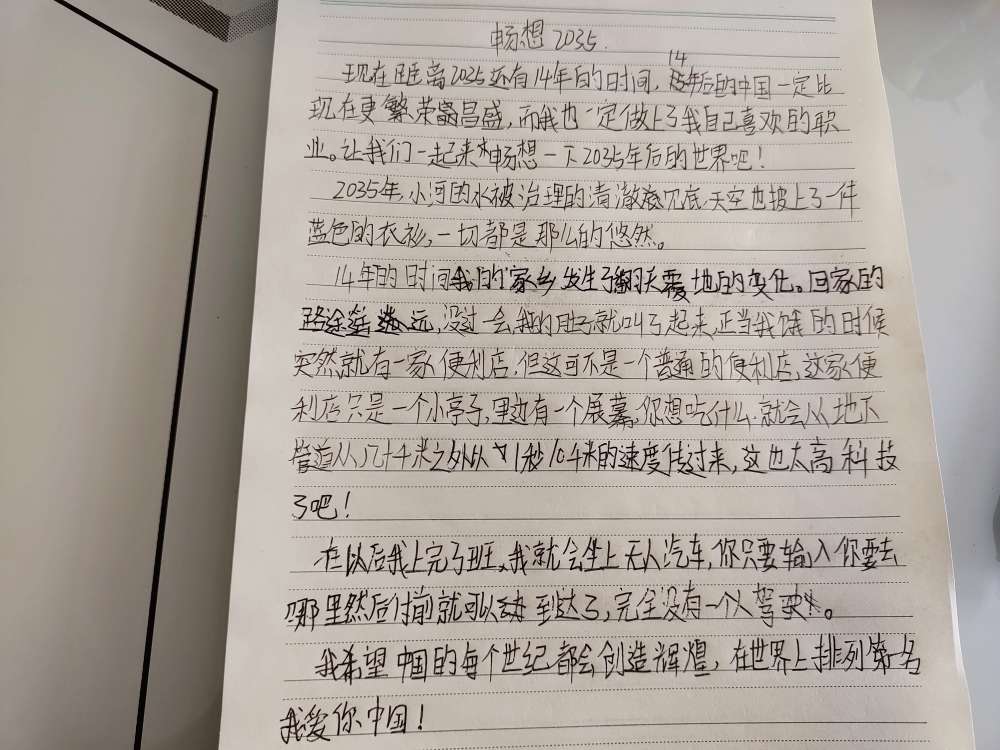 畅想2035.
现在距离2035还有14年的时间,14年后的中国一定比
现在更繁荣昌盛,而我也一定做上了我自己喜欢的职
业。让我们一起来畅想一下2035年后的世界吧!
2035年,小河的水被治理的清澈见底,天空也披上了一件
蓝色的衣衫,一切都是那么的悠然。
14年的时间我的家乡发生了翻天覆地的变化。回家的
路途遥远,没过一会我的肚子就叫了起来,正当我饿的时候
突然就有一家便利店,但这可不是一个普通的便利店,这家便
利店只是一个小亭子,里边有一个屏幕,你想吃什么就会从地下
管道从几十千米之外以1秒10千米的速度传过来,这也太高科技
了吧!
在以后我上完了班,我就会坐上无人汽车,你只要输入你要去
哪里然后付钱就可以到达了,完全没有一个人驾驶。
我希望中国的每个世纪都会创造辉煌,在世界上排列第一名
我爱你中国!